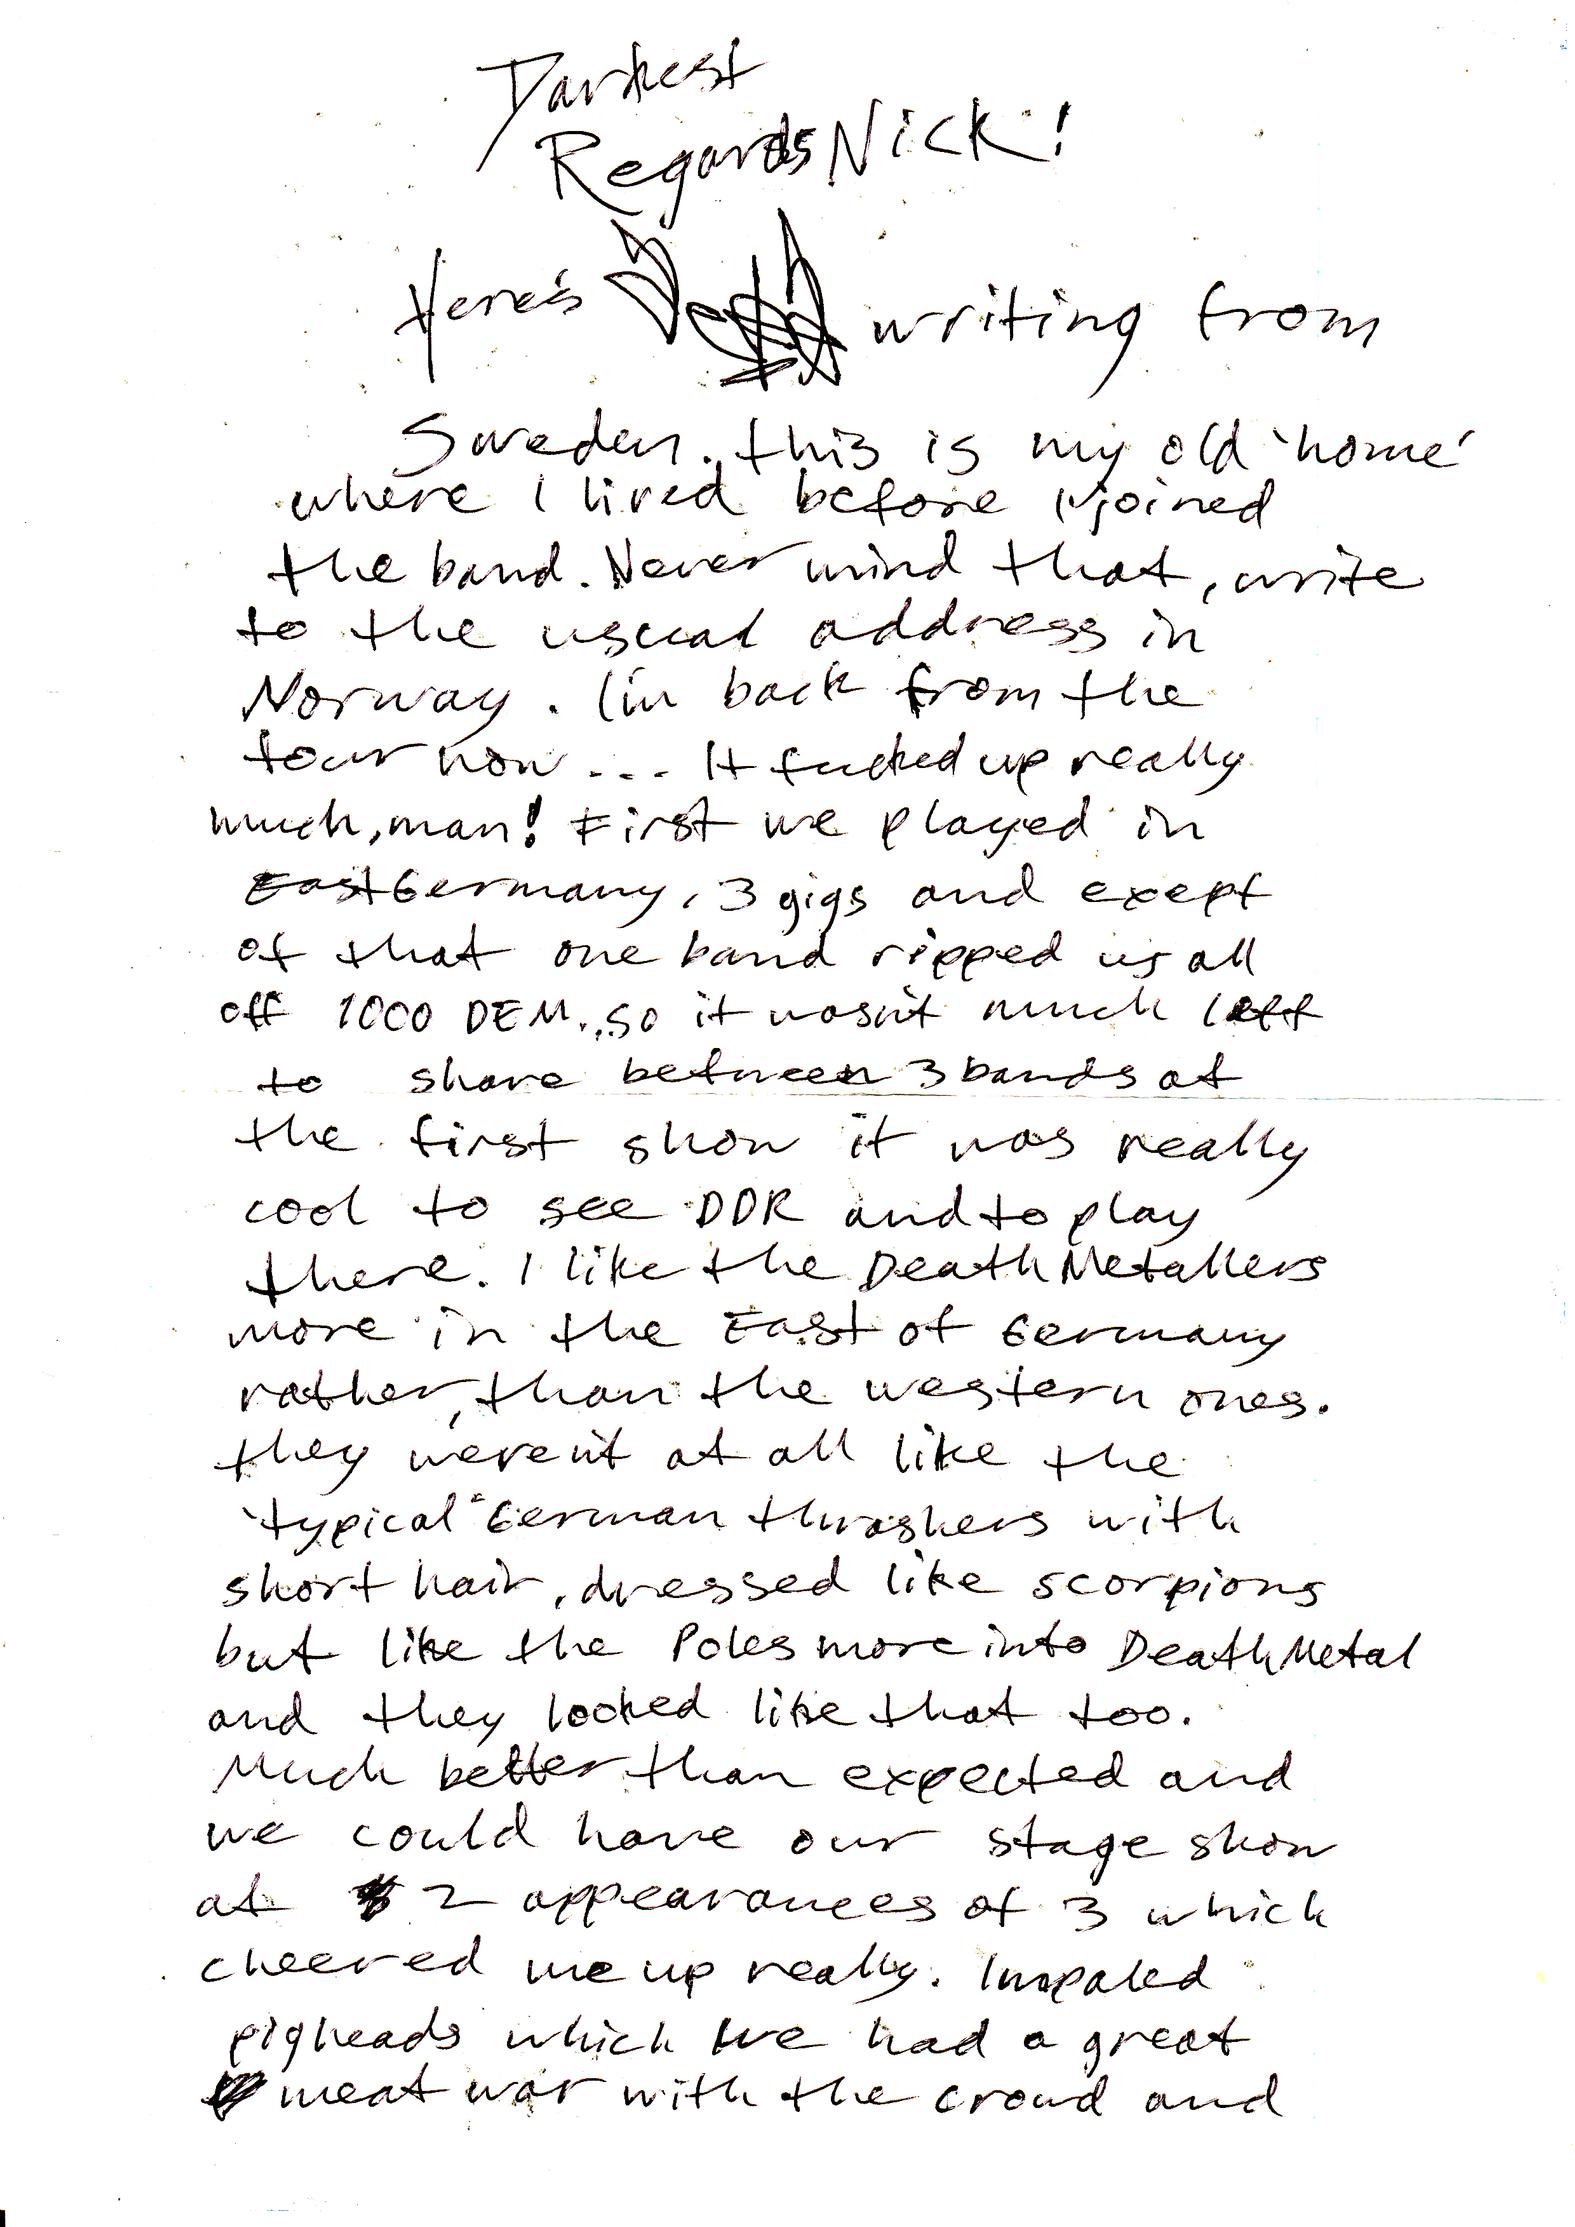 Darkest
Regards Nick!
Here's Dead writing from
Sweden. this is my old 'home'
where I lived before I joined
the band. Never mind that, write
to the usual address in
Norway. I'm back from the
tour now... It fucked up really
much, man! First we played in
East Germany, 3 gigs and exept
of that one band ripped us all
off 1000 DEM. so it wasn't much left
to share between 3 bands at
the first show it was really
cool to see DDR and to play
there. I like the Death Metallers
more in the East of Germany
rather, than the western ones.
they weren't at all like the
'typical" German thrashers with
short hair, dressed like scorpions
but like the Poles more into Death Metal
and they looked like that too.
Much better than expected and
we could have our stage show
at 2 appearances of 3 which
cheered me up really. Impaled
pigheads which we had a great
meat war with the crowd and